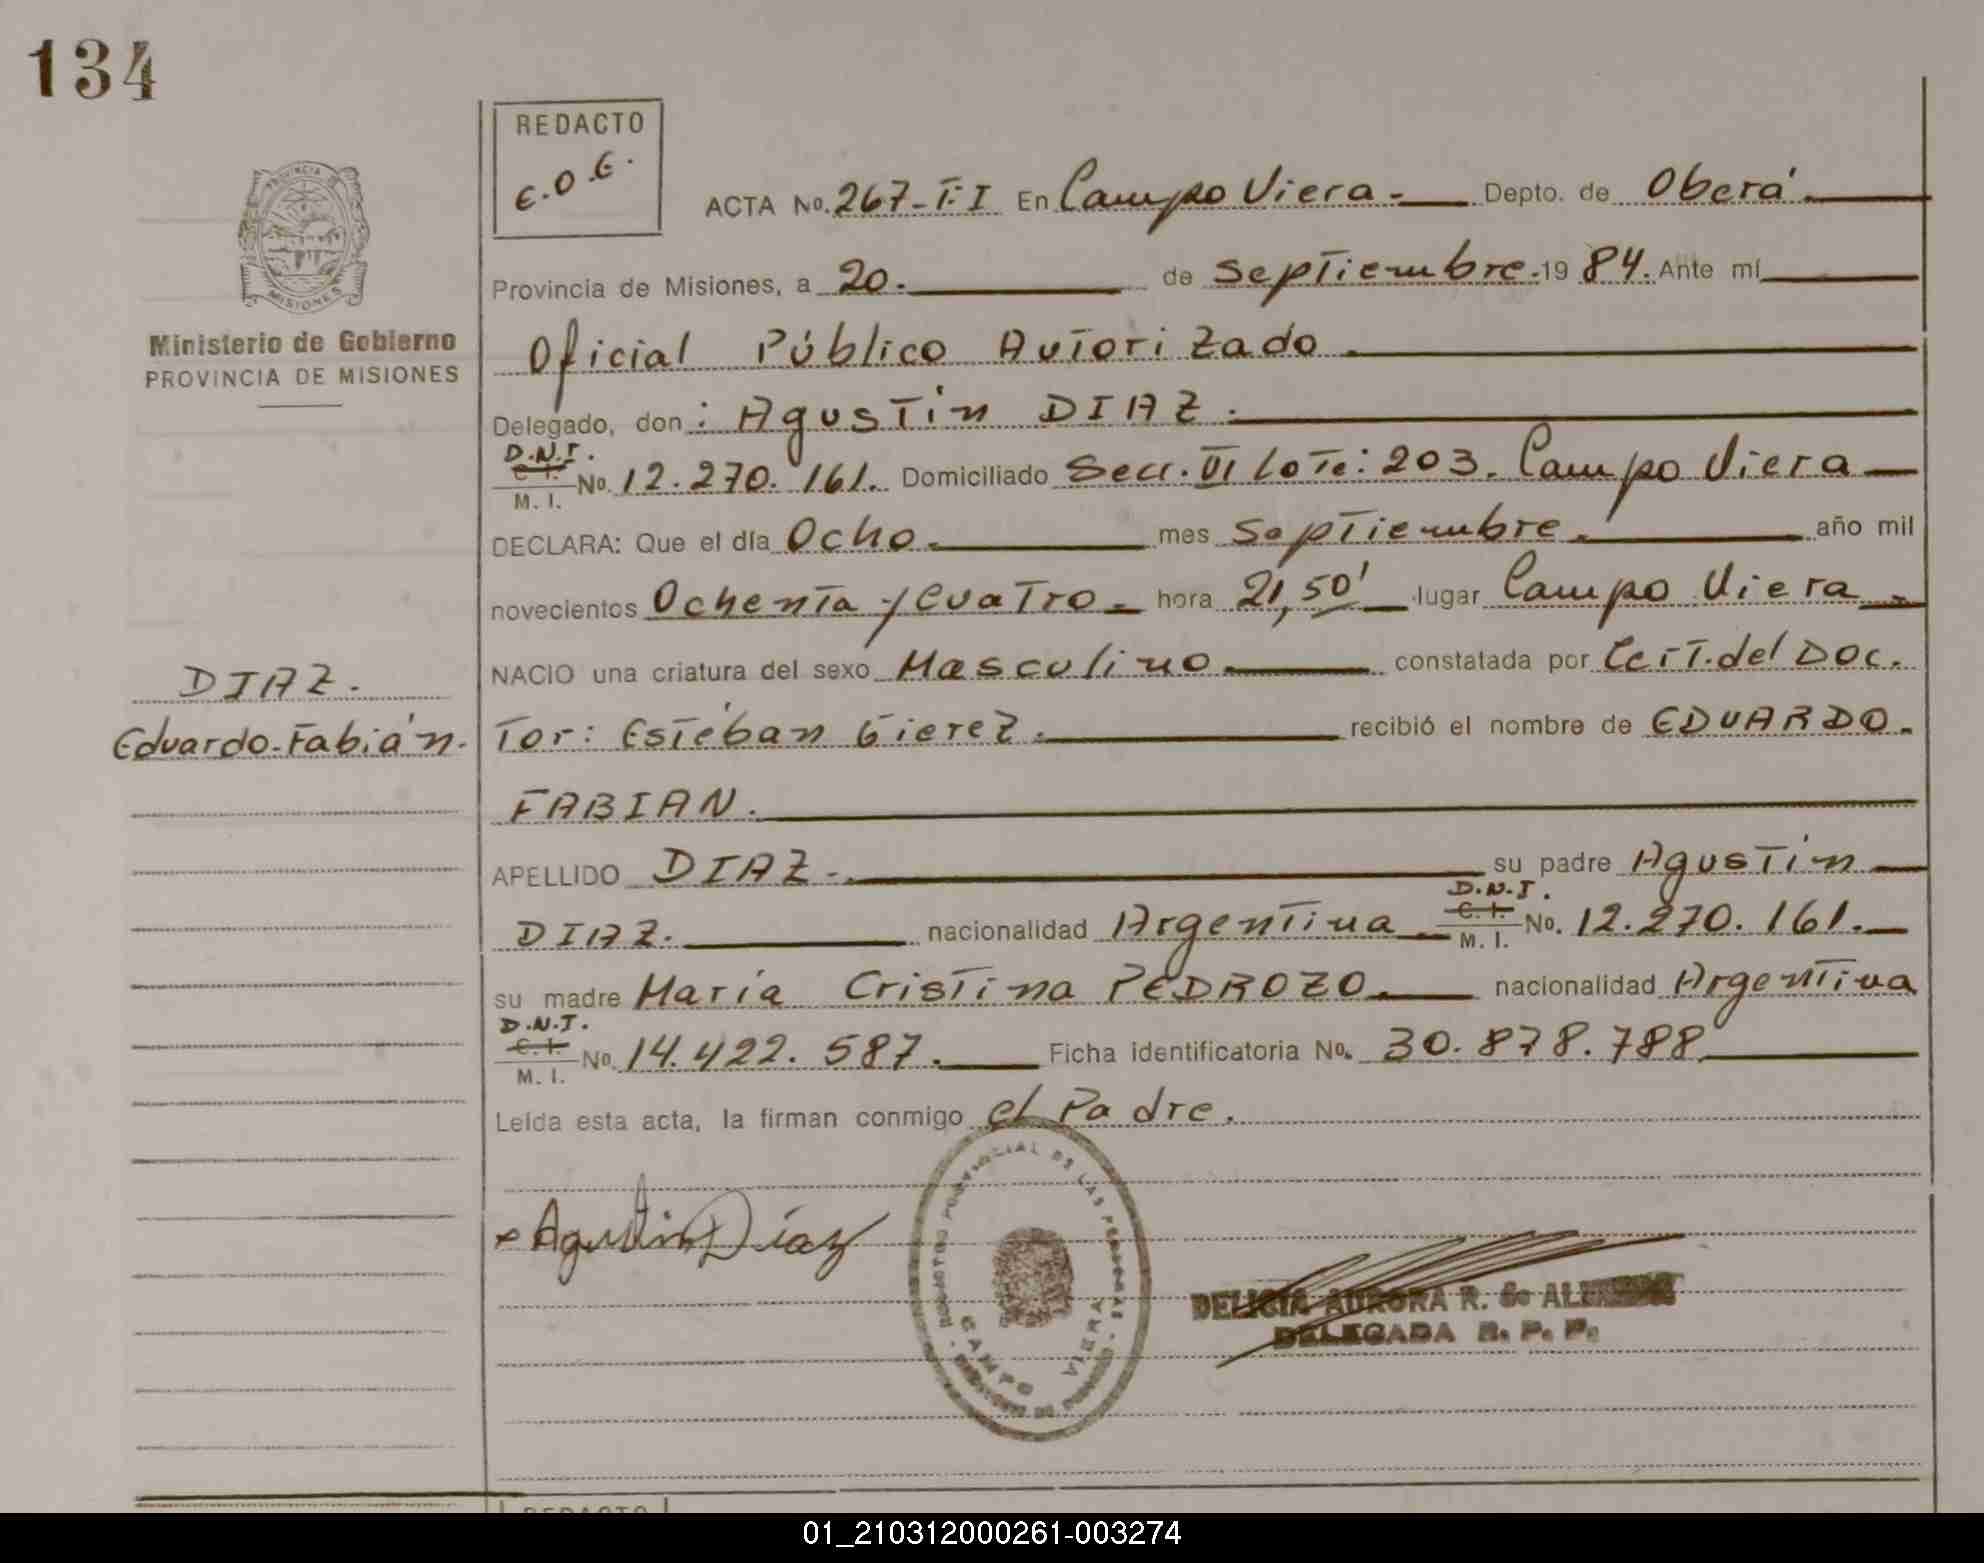 134
REDACTO
E.O.E.
PROVINCIA DE
MISIONES
Ministerio de Gobierno
PROVINCIA DE MISIONES
ACTA No. 267-T:I En Campo Viera.- Depto. de Oberá.
Provincia de Misiones, a 20. de Septiembre.19 84. Ante mí
Oficial Público Autorizado.
Delegado, don: Agustín DIAZ.
D.N.I.
C.I.
M. I. No. 12.270.161. Domiciliado Secc. VI Lote: 203. Campo Viera
DECLARA: Que el día Ocho. mes Septiembre. año mil
novecientos Ochenta y Cuatro. hora 21,50' lugar Campo Viera
NACIO una criatura del sexo Masculino constatada por Cert. del Doc.
DIAZ.
Eduardo-Fabián.
Tor: Estéban Gierez. recibió el nombre de EDUARDO.
FABIAN.
APELLIDO DIAZ. su padre Agustín
DIAZ. nacionalidad Argentina
D.N.I.
C.I.
M. I. No. 12.270.161.
su madre María Cristina PEDROZO. nacionalidad Argentina
D.N.I.
C.I.
M. I. No. 14.422.587. Ficha identificatoria No. 30.878.788
Leída esta acta, la firman conmigo el Padre.
Agustin Díaz
REGISTRO PROVINCIAL DE LAS PERSONAS
CAMPO VIERA
DELICIA AURORA R. de
DELEGADA R. P. P.
REDACTO
01_210312000261-003274